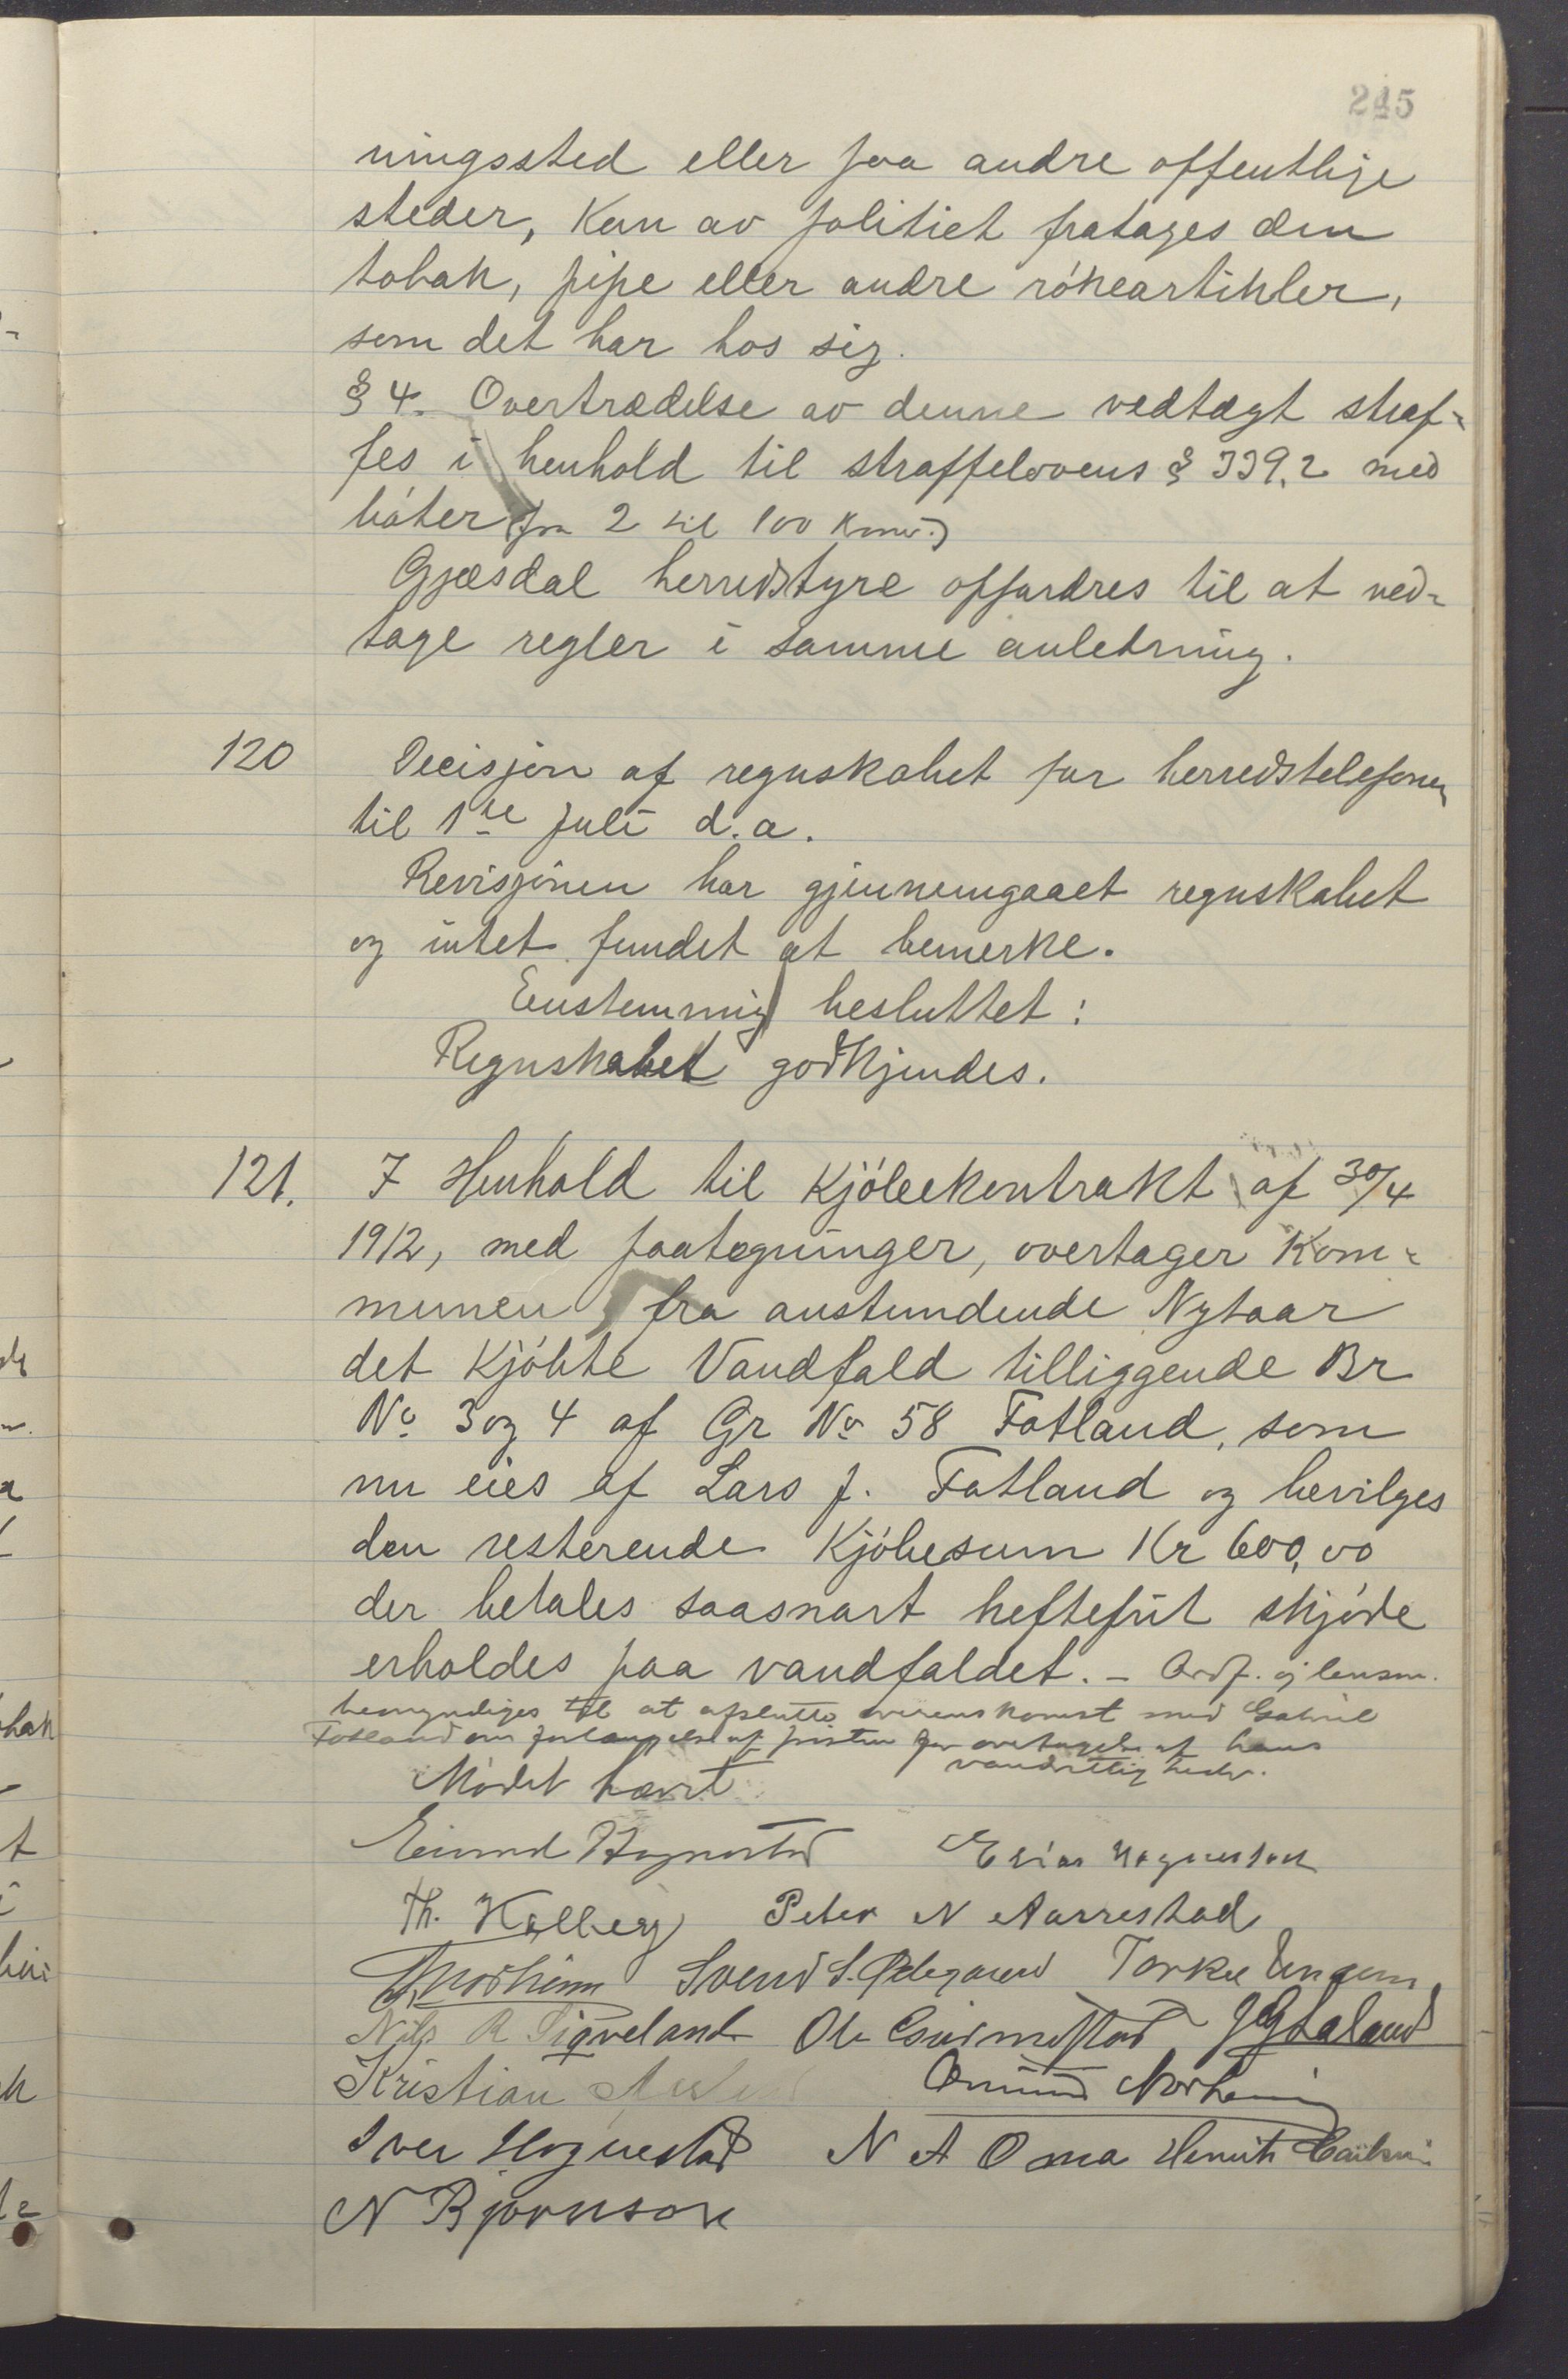 245
ningssted eller paa andre offentlige
steder, kan av politiet fratages den
tobak, pipe eller andre rökeartikler,
som det har hos sig.
§ 4. Overtrædelse av denne vedtægt straf-
fes i henhold til straffelovens § 339,2 med
böter (fra 2 til 100 kroner.)
Gjæsdal herredstyre opfordres til at ved-
tage regler i samme anledning.
120 Decisjon af regnskabet for herredstelefonen
til 1ste juli d.a.
Revisjonen har gjennemgaaet regnskabet
og intet fundet at bemerke.
Enstemmig besluttet:
Regnskabet godkjendes.
121. I Henhold til Kjöbekontrakt af 30/4
1912, med paategninger, overtager Kom-
munen, fra anstundende Nytaar
det kjöbte Vandfald tilliggende Br
No 3 og 4 af Gr No 58 Fotland, som
nu eies af Lars J. Fotland og bevilges
den resterende Kjöbesum Kr 600,00
der betales saasnart heftefrit skjöde
erholdes paa vandfaldet. - Ordf. og lensm.
bemyndiges til at afslutte overenskomst med Gabriel
Fotland om forlængelse af fristen for overtagelse af hans
vandrettigheder.
Mödet hævet
Eivind Hognestad Elias Hognestad
Th. Kalberg Peter N Aarrestad
Norheim Svend S. Ødegaard Torkel
Nils R Sigveland Ole J G Laland
Kristian Omund Norheim
Iver Hognestad N A Oma
N Bjørnson